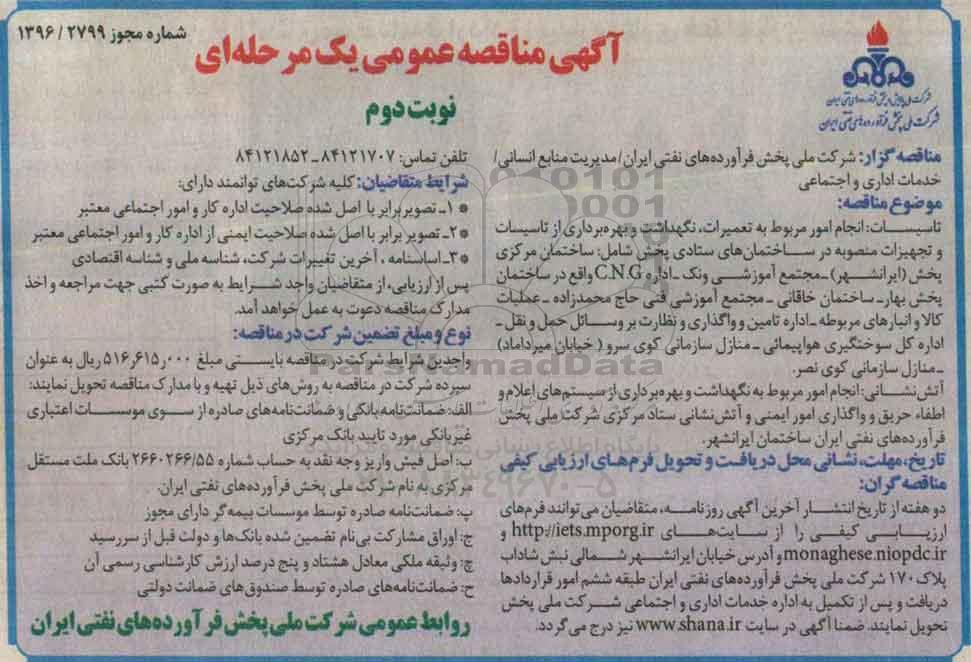 شماره مجوز ۲۷۹۹ / ۱۳۹۶
آگهی مناقصه عمومی یک مرحله‌ای
نوبت دوم
شرکت ملی پالایش و پخش فرآورده‌های نفتی ایران
شرکت ملی پخش فرآورده‌های نفتی ایران
مناقصه گزار: شرکت ملی پخش فرآورده‌های نفتی ایران/مدیریت منابع انسانی/
خدمات اداری و اجتماعی
موضوع مناقصه:
تاسیسات: انجام امور مربوط به تعمیرات، نگهداشت و بهره‌برداری از تاسیسات
و تجهیزات منصوبه در ساختمان‌های ستادی پخش شامل: ساختمان مرکزی
پخش (ایرانشهر) ـ مجتمع آموزشی ونک ـ اداره C.N.G واقع در ساختمان
پخش بهار ـ ساختمان خاقانی ـ مجتمع آموزشی فنی حاج محمدزاده ـ عملیات
کالا و انبارهای مربوطه ـ اداره تامین و واگذاری و نظارت بر وسائل حمل و نقل ـ
اداره کل سوختگیری هواپیمائی ـ منازل سازمانی کوی سرو ( خیابان میرداماد)
ـ منازل سازمانی کوی نصر.
آتش‌نشانی: انجام امور مربوط به نگهداشت و بهره‌برداری از سیستم‌های اعلام و
اطفاء حریق و واگذاری امور ایمنی و آتش‌نشانی ستاد مرکزی شرکت ملی پخش
فرآورده‌های نفتی ایران ساختمان ایرانشهر.
تاریخ، مهلت، نشانی محل دریافت و تحویل فرم‌های ارزیابی کیفی
مناقصه گران:
دو هفته از تاریخ انتشار آخرین آگهی روزنامه، متقاضیان می‌توانند فرم‌های
ارزیابی کیفی را از سایت‌های http://iets.mporg.ir و
monaghese.niopdc.ir و آدرس خیابان ایرانشهر شمالی نبش شاداب
پلاک ۱۷۰ شرکت ملی پخش فرآورده‌های نفتی ایران طبقه ششم امور قراردادها
دریافت و پس از تکمیل به اداره خدمات اداری و اجتماعی شرکت ملی پخش
تحویل نمایند. ضمنا آگهی در سایت www.shana.ir نیز درج می گردد.
تلفن تماس: ۸۴۱۲۱۷۰۷ ـ ۸۴۱۲۱۸۵۲
شرایط متقاضیان: کلیه شرکت‌های توانمند دارای:
* ۱ـ تصویر برابر با اصل شده صلاحیت اداره کار و امور اجتماعی معتبر
* ۲ـ تصویر برابر با اصل شده صلاحیت ایمنی از اداره کار و امور اجتماعی معتبر
* ۳ـ اساسنامه ، آخرین تغییرات شرکت، شناسه ملی و شناسه اقتصادی
پس از ارزیابی، از متقاضیان واجد شرایط به صورت کتبی جهت مراجعه و اخذ
مدارک مناقصه دعوت به عمل خواهد آمد.
نوع و مبلغ تضمین شرکت در مناقصه:
واجدین شرایط شرکت در مناقصه بایستی مبلغ ۵۱۶٫۶۱۵٫۰۰۰ ریال به عنوان
سپرده شرکت در مناقصه به روش‌های ذیل تهیه و با مدارک مناقصه تحویل نمایند:
الف: ضمانت‌نامه بانکی و ضمانت‌نامه‌های صادره از سوی موسسات اعتباری
غیربانکی مورد تایید بانک مرکزی
ب: اصل فیش واریز وجه نقد به حساب شماره ۲۶۶۰۲۶۶/۵۵ بانک ملت مستقل
مرکزی به نام شرکت ملی پخش فرآورده‌های نفتی ایران.
پ: ضمانت‌نامه صادره توسط موسسات بیمه‌گر دارای مجوز
ج: اوراق مشارکت بی‌نام تضمین شده بانک‌ها و دولت قبل از سررسید
چ: وثیقه ملکی معادل هشتاد و پنج درصد ارزش کارشناسی رسمی آن
ح: ضمانت‌نامه‌های صادره توسط صندوق‌های ضمانت دولتی
روابط عمومی شرکت ملی پخش فرآورده‌های نفتی ایران
ParsNamadData